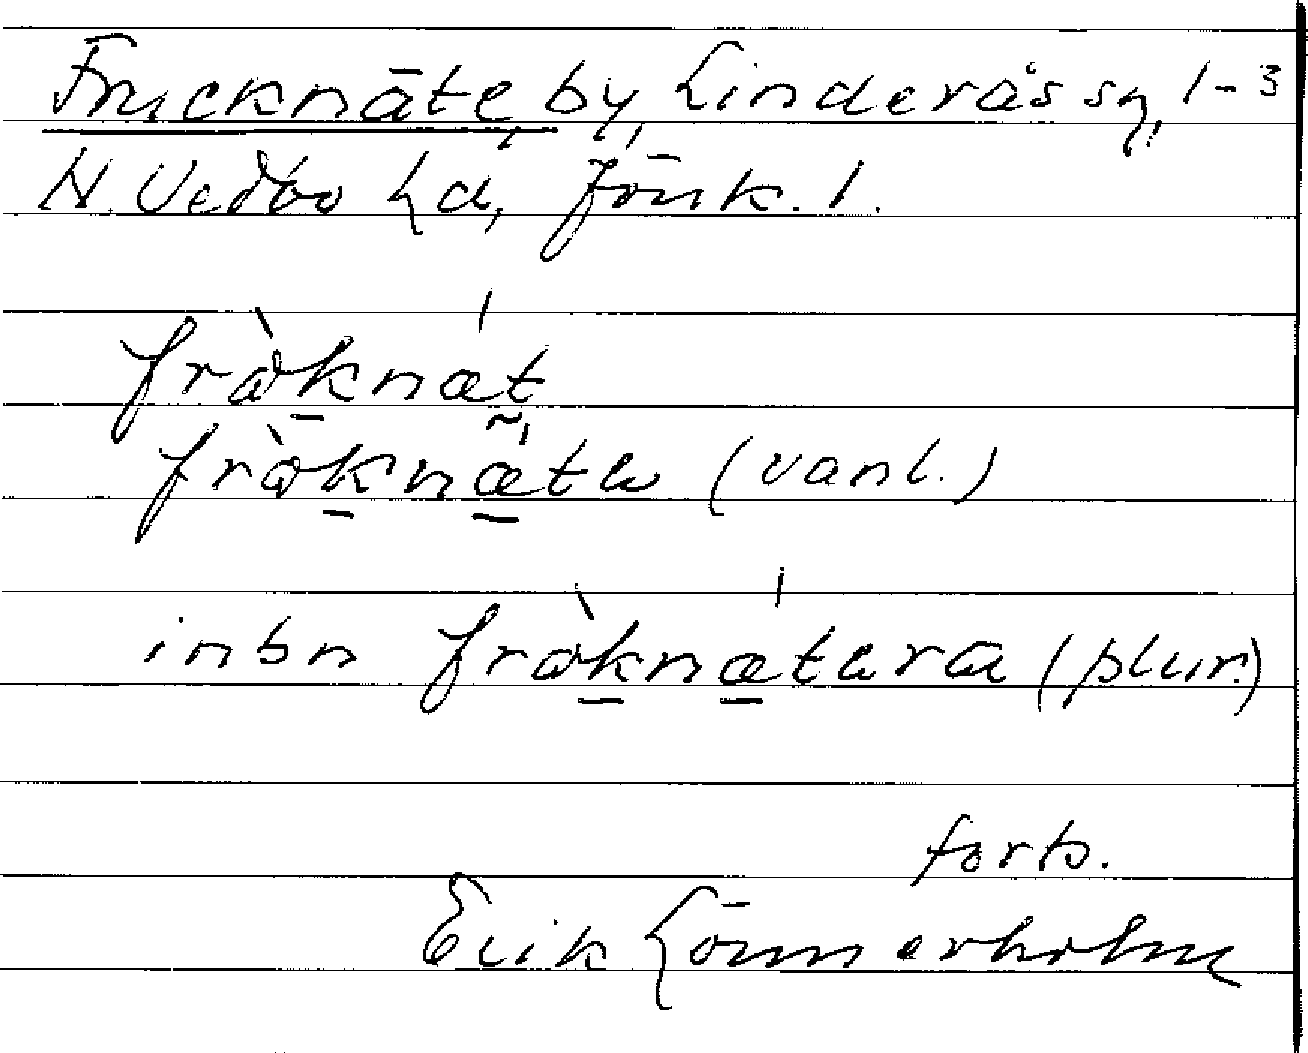 Frucknäte, by, Linderås sn, 1-3
N. Vedbo hd, Jönk. l.
fròknæt
fròknæta (vanl.)
inbn fròknætara (plur.)
forts.
Erik Lönnerholm